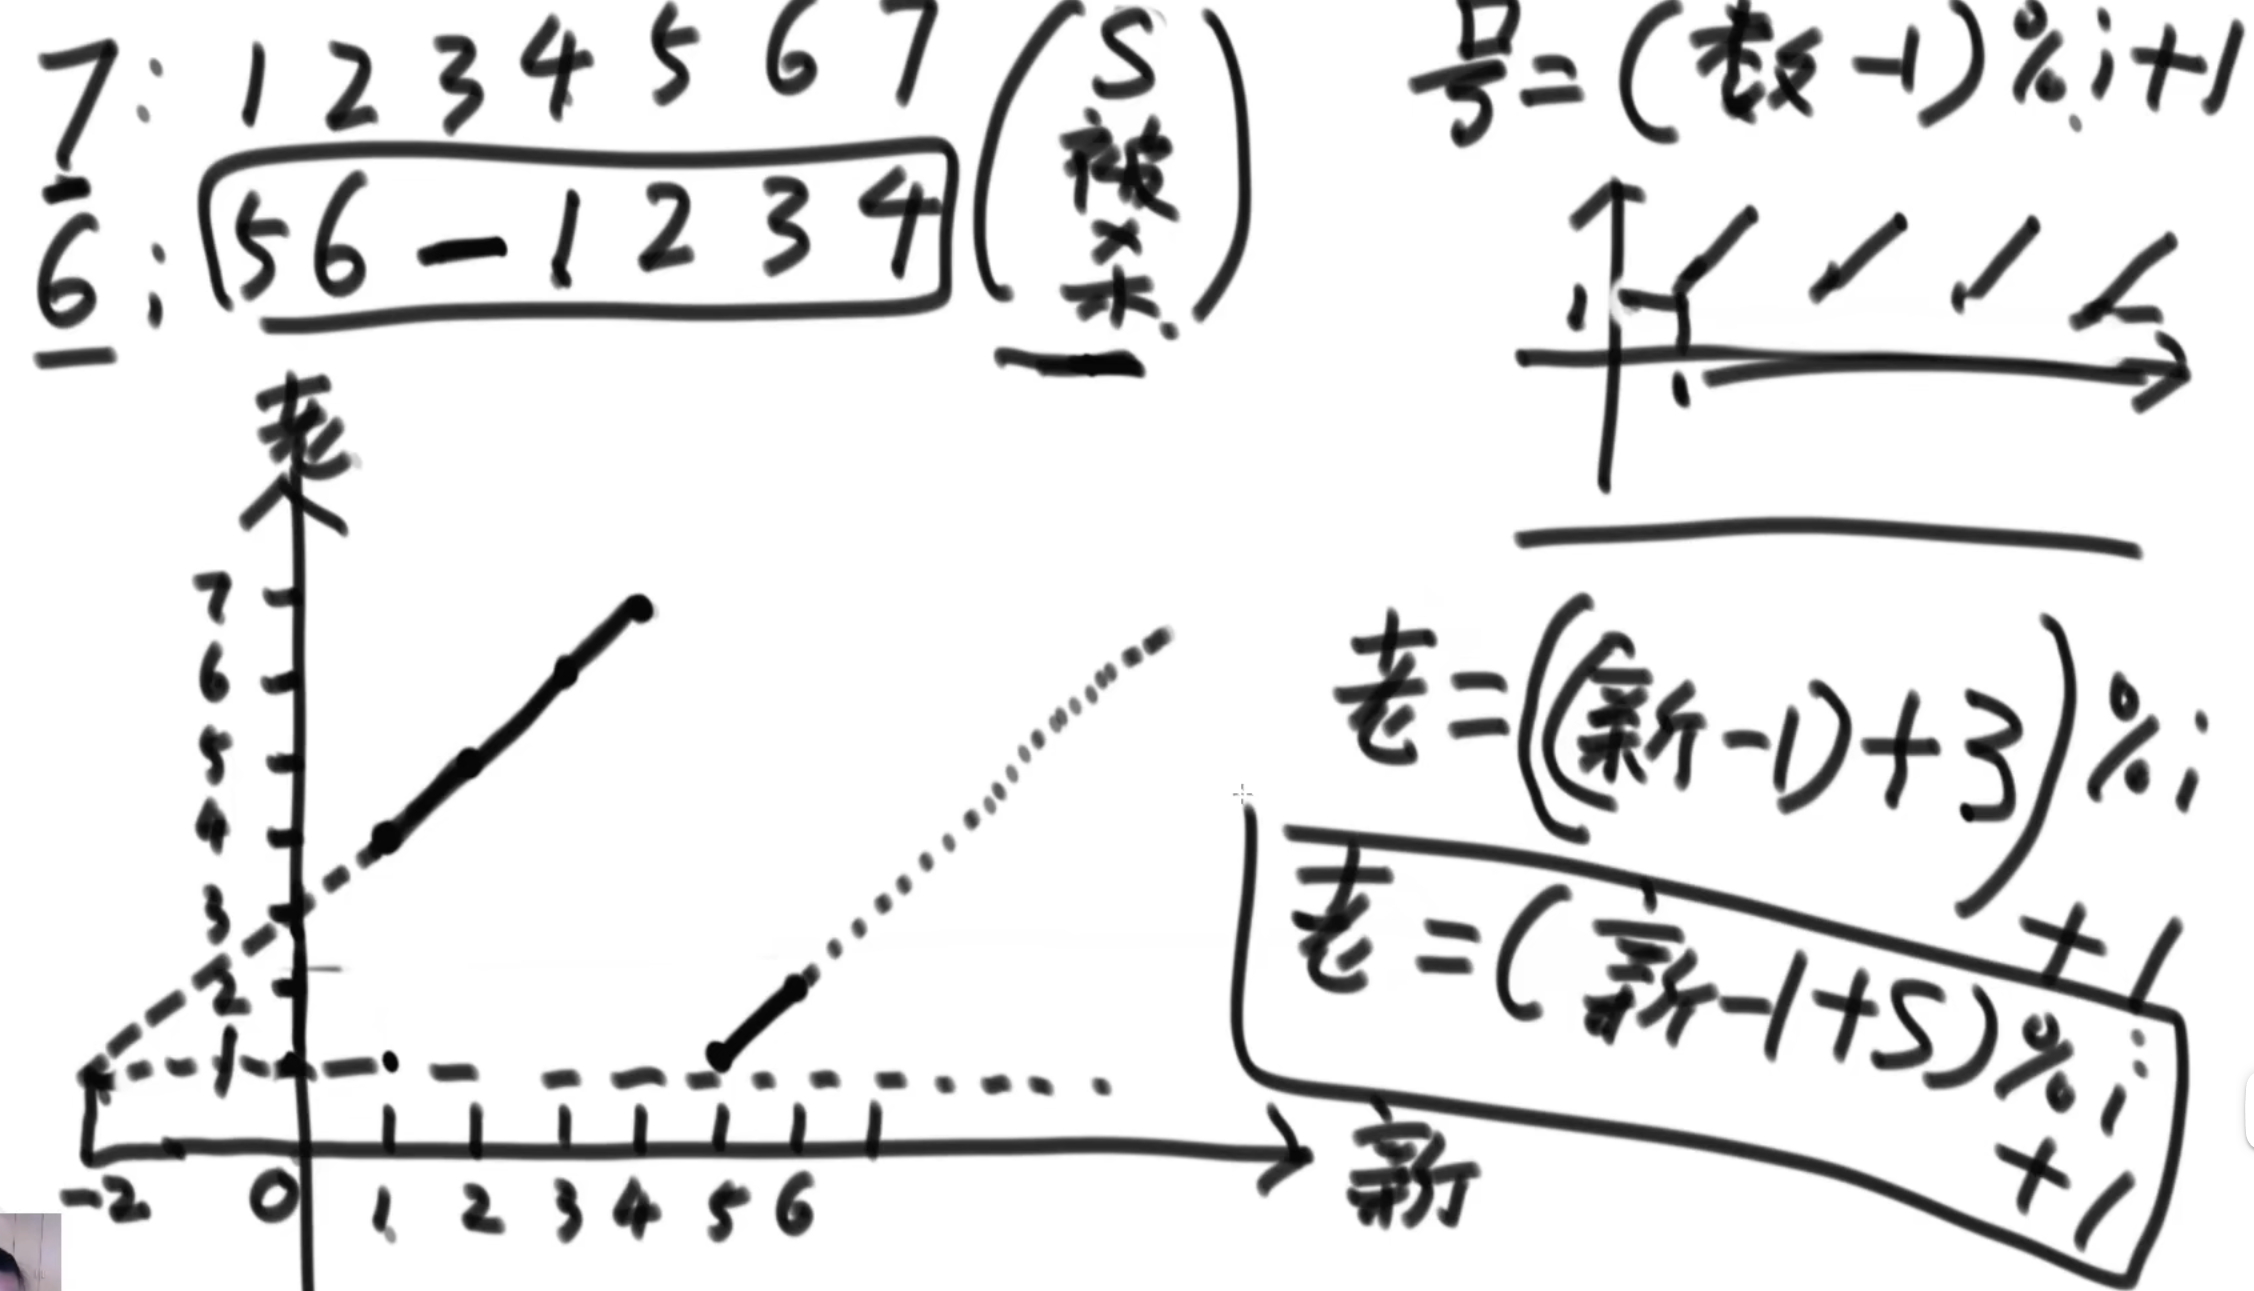 7: 1 2 3 4 5 6 7
6: 5 6 - 1 2 3 4
(S被杀)
号=(数-1)%i+1
1
1
老
7
6
5
4
3
2
1
-2 0 1 2 3 4 5 6
新
老=((新-1)+3)%i+1
老=(新-1+S)%i+1